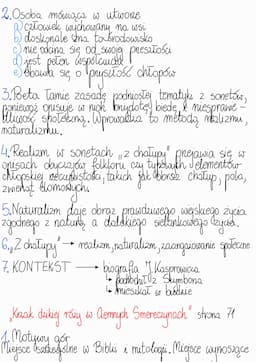 2. Osoba mówiąca w utworze
a) człowiek wychowany na wsi
b) doskonale zna to środowisko
c) nie odcina się od swojej przeszłości
d) jest pełen współczucia
e) obawia się o przyszłość chłopów
3. Poeta łamie zasadę podniosłej tematyki z sonetów,
ponieważ opisuje w nich brzydotę, biedę i niesprawie-
dliwość społeczną. Wprowadza to metodą realizmu,
naturalizmu.
4. Realizm w sonetach „z chałupy" przejawia się w
opisach obyczajów folkloru czy typowych elementów
chłopskiej rzeczywistości, takich jak obraz chałup, pola,
zwierząt domowych.
5. Naturalizm daje obraz prawdziwego wiejskiego życia
zgodnego z naturą, a dalekiego sielankowego życia.
6. „Z chałupy" → realizm, naturalizm, zaangażowanie społeczne
7. KONTEKST → biografia J. Kasprowicza
→ pochodził z Szymborza
→ mieszkał w biedzie
„Krzak dzikiej róży w Ciemnych Smreczynach" strona 71
1. Motywy gór
Miejsce szczególne w Biblii i mitologii. Miejsce wynoszące